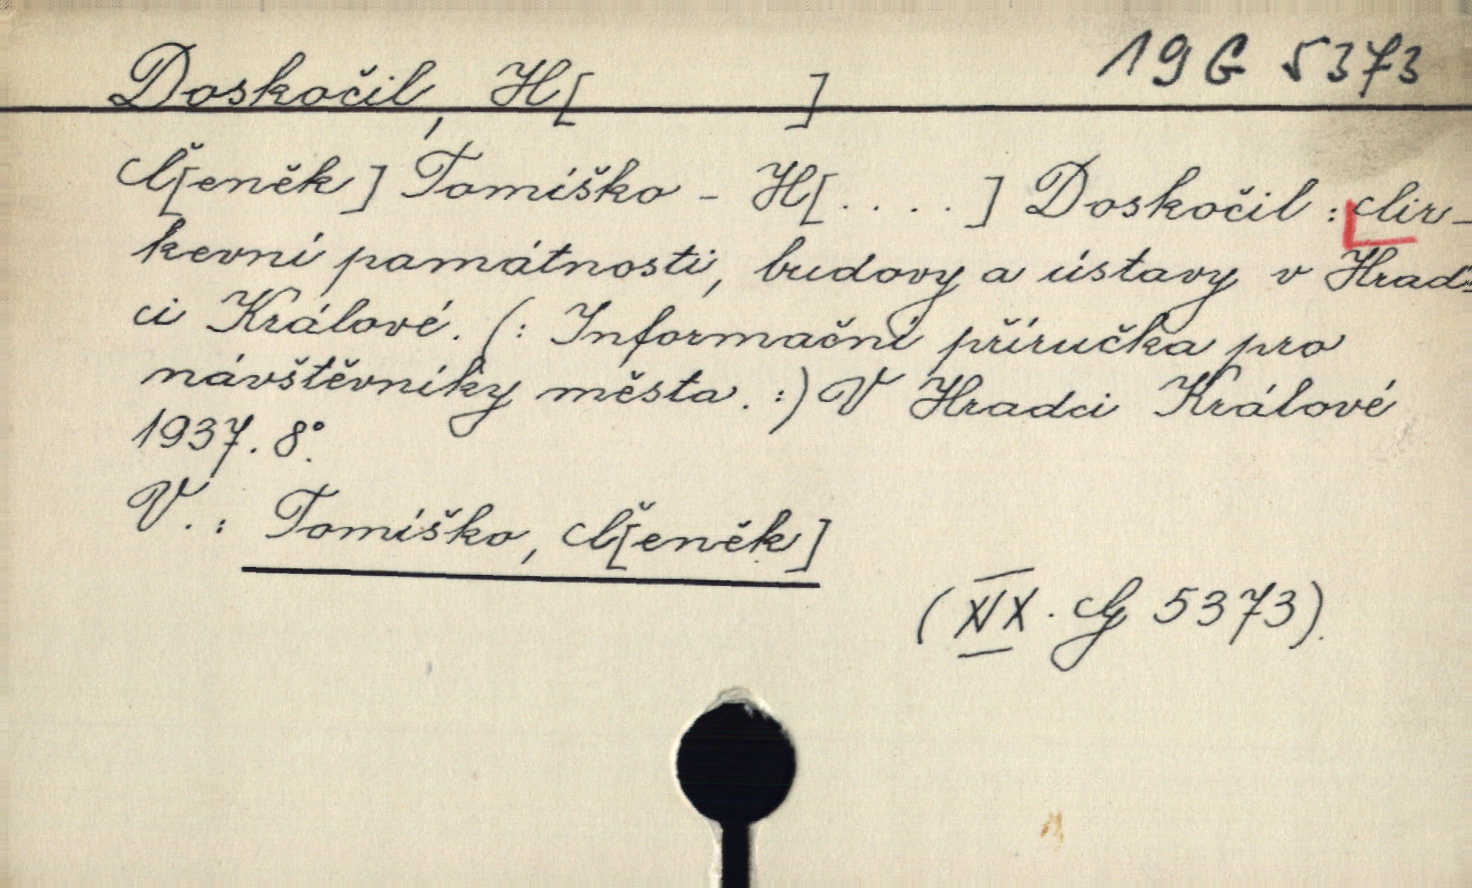 19 G 5373
Doskočil, H[ ]
Č[eněk] Tomíško - H[....] Doskočil: Cír-
kevní památnosti, budovy a ústavy v Hrad-
ci Králové. (: Informační příručka pro
návštěvníky města. :) V Hradci Králové
1937. 8°.
V.: Tomíško, Č[eněk]
(XIX. G 5373).